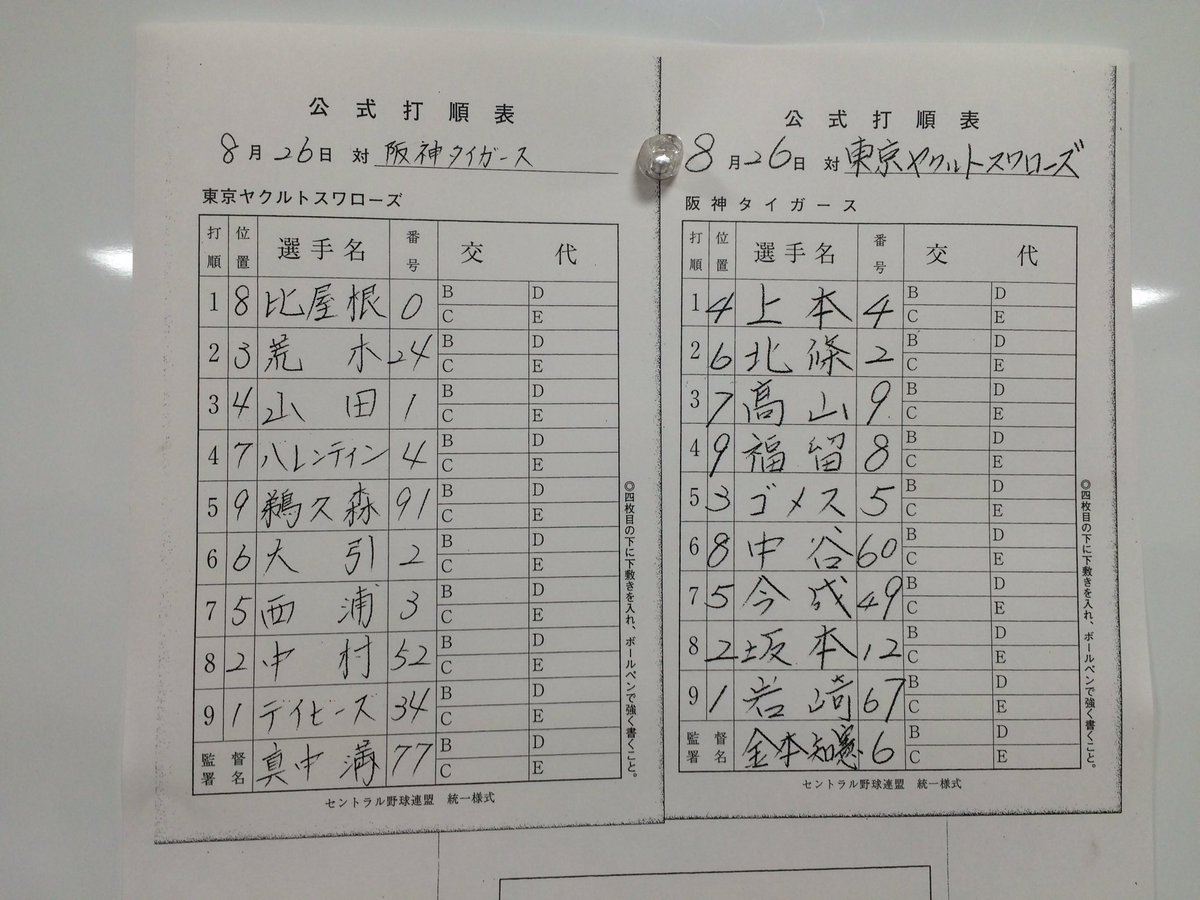 公式打順表
8月26日 対 阪神タイガース
東京ヤクルトスワローズ
打順 位置 選手名 番号 交代
1 8 比屋根 0 B D C E
2 3 荒木 24 B D C E
3 4 山田 1 B D C E
4 7 バレンティン 4 B D C E
5 9 鵜久森 91 B D C E
6 6 大引 2 B D C E
7 5 西浦 3 B D C E
8 2 中村 52 B D C E
9 1 デイビーズ 34 B D C E
監督署名 真中満 77 B D C E
セントラル野球連盟 統一様式
◎四枚目の下に下敷きを入れ、ボールペンで強く書くこと。
公式打順表
8月26日 対 東京ヤクルトスワローズ
阪神タイガース
打順 位置 選手名 番号 交代
1 4 上本 4 B D C E
2 6 北條 2 B D C E
3 7 髙山 9 B D C E
4 9 福留 8 B D C E
5 3 ゴメス 5 B D C E
6 8 中谷 60 B D C E
7 5 今成 49 B D C E
8 2 坂本 12 B D C E
9 1 岩崎 67 B D C E
監督署名 金本知憲 6 B D C E
セントラル野球連盟 統一様式
◎四枚目の下に下敷きを入れ、ボールペンで強く書くこと。